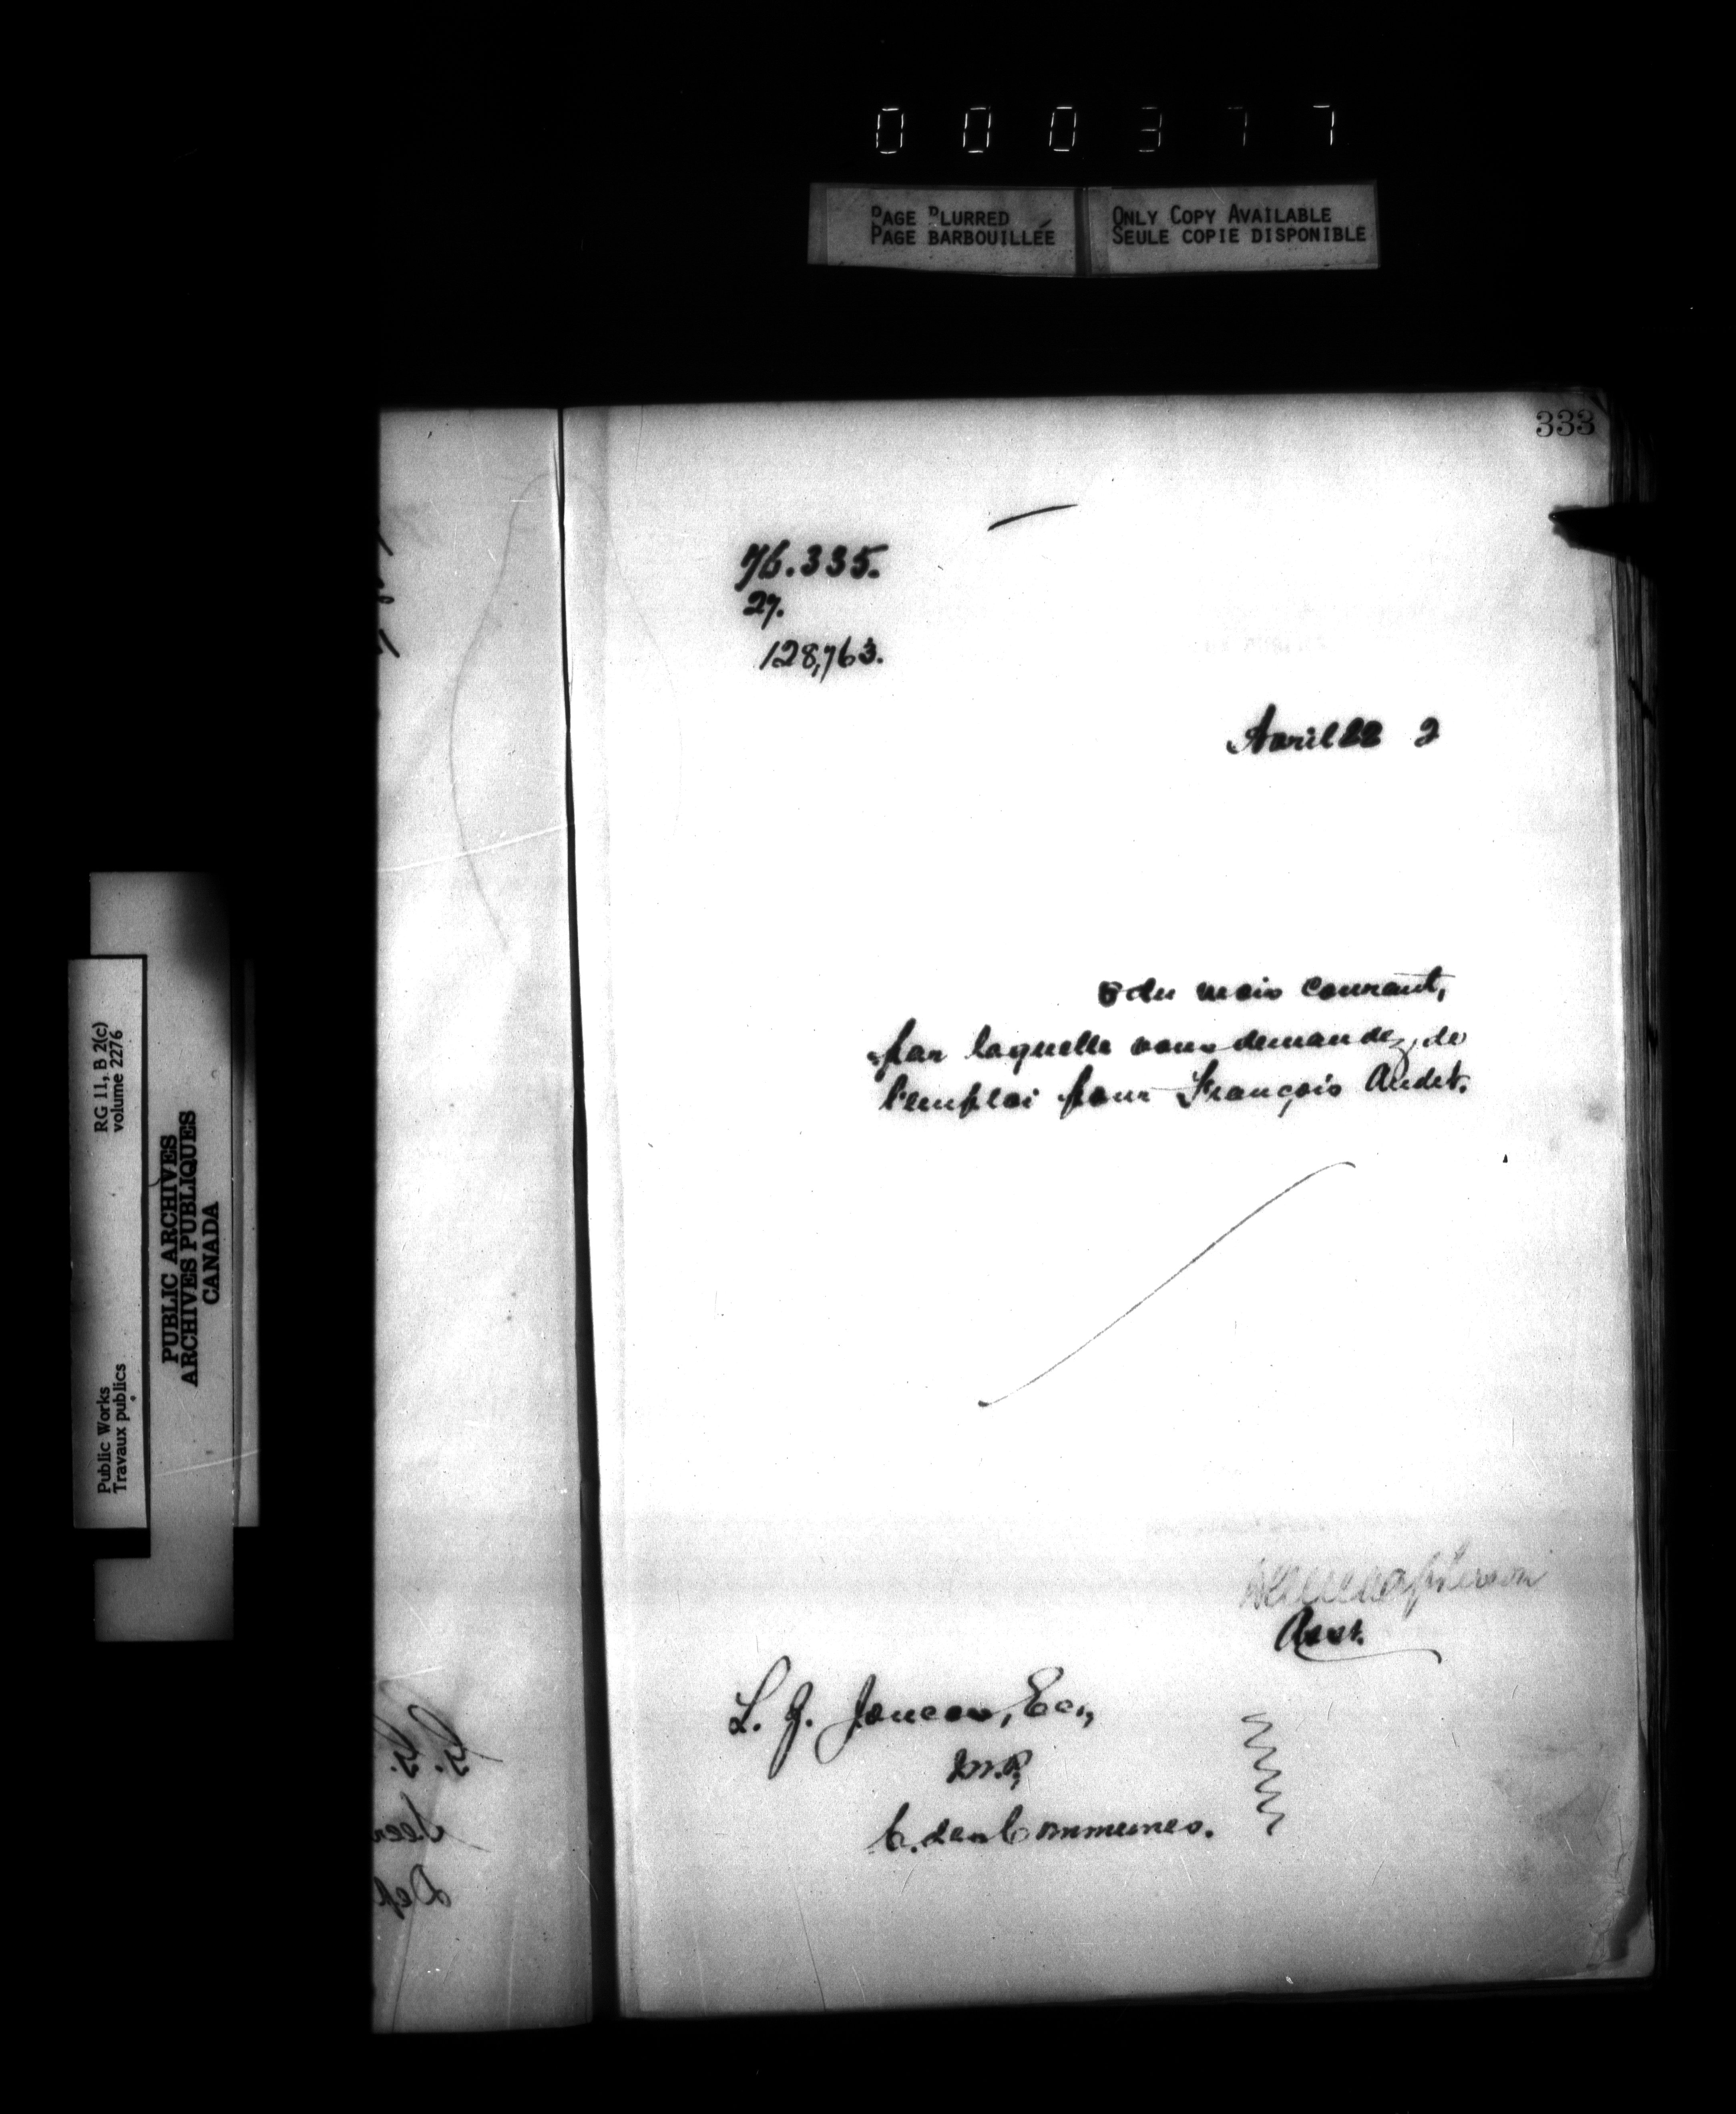 000377
PAGE BLURRED
PAGE BARBOUILLÉE
ONLY COPY AVAILABLE
SEULE COPIE DISPONIBLE
333
76.335.
27.
128,763.
Avril 22 2
du mois courant,
par laquelle vous demandez de
l'emploi pour François Audet.
Asst.
L. J. Joncas, Ecr.,
M.P.,
C. des Communes.
RG 11, B 2(c)
volume 2276
Public Works
Travaux publics
PUBLIC ARCHIVES
ARCHIVES PUBLIQUES
CANADA